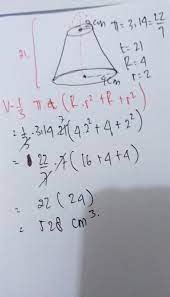 2cm
π = 3.14 = 22/7
21
t = 21
R = 4
r = 2
4cm
V = 1/3 π t (R.r² + R + r²)
= 1/3 . 3.14 21 7 (4.2² + 4 + 2²)
= 22/7 . 7 (16 + 4 + 4)
= 22 (24)
= 528 cm³.